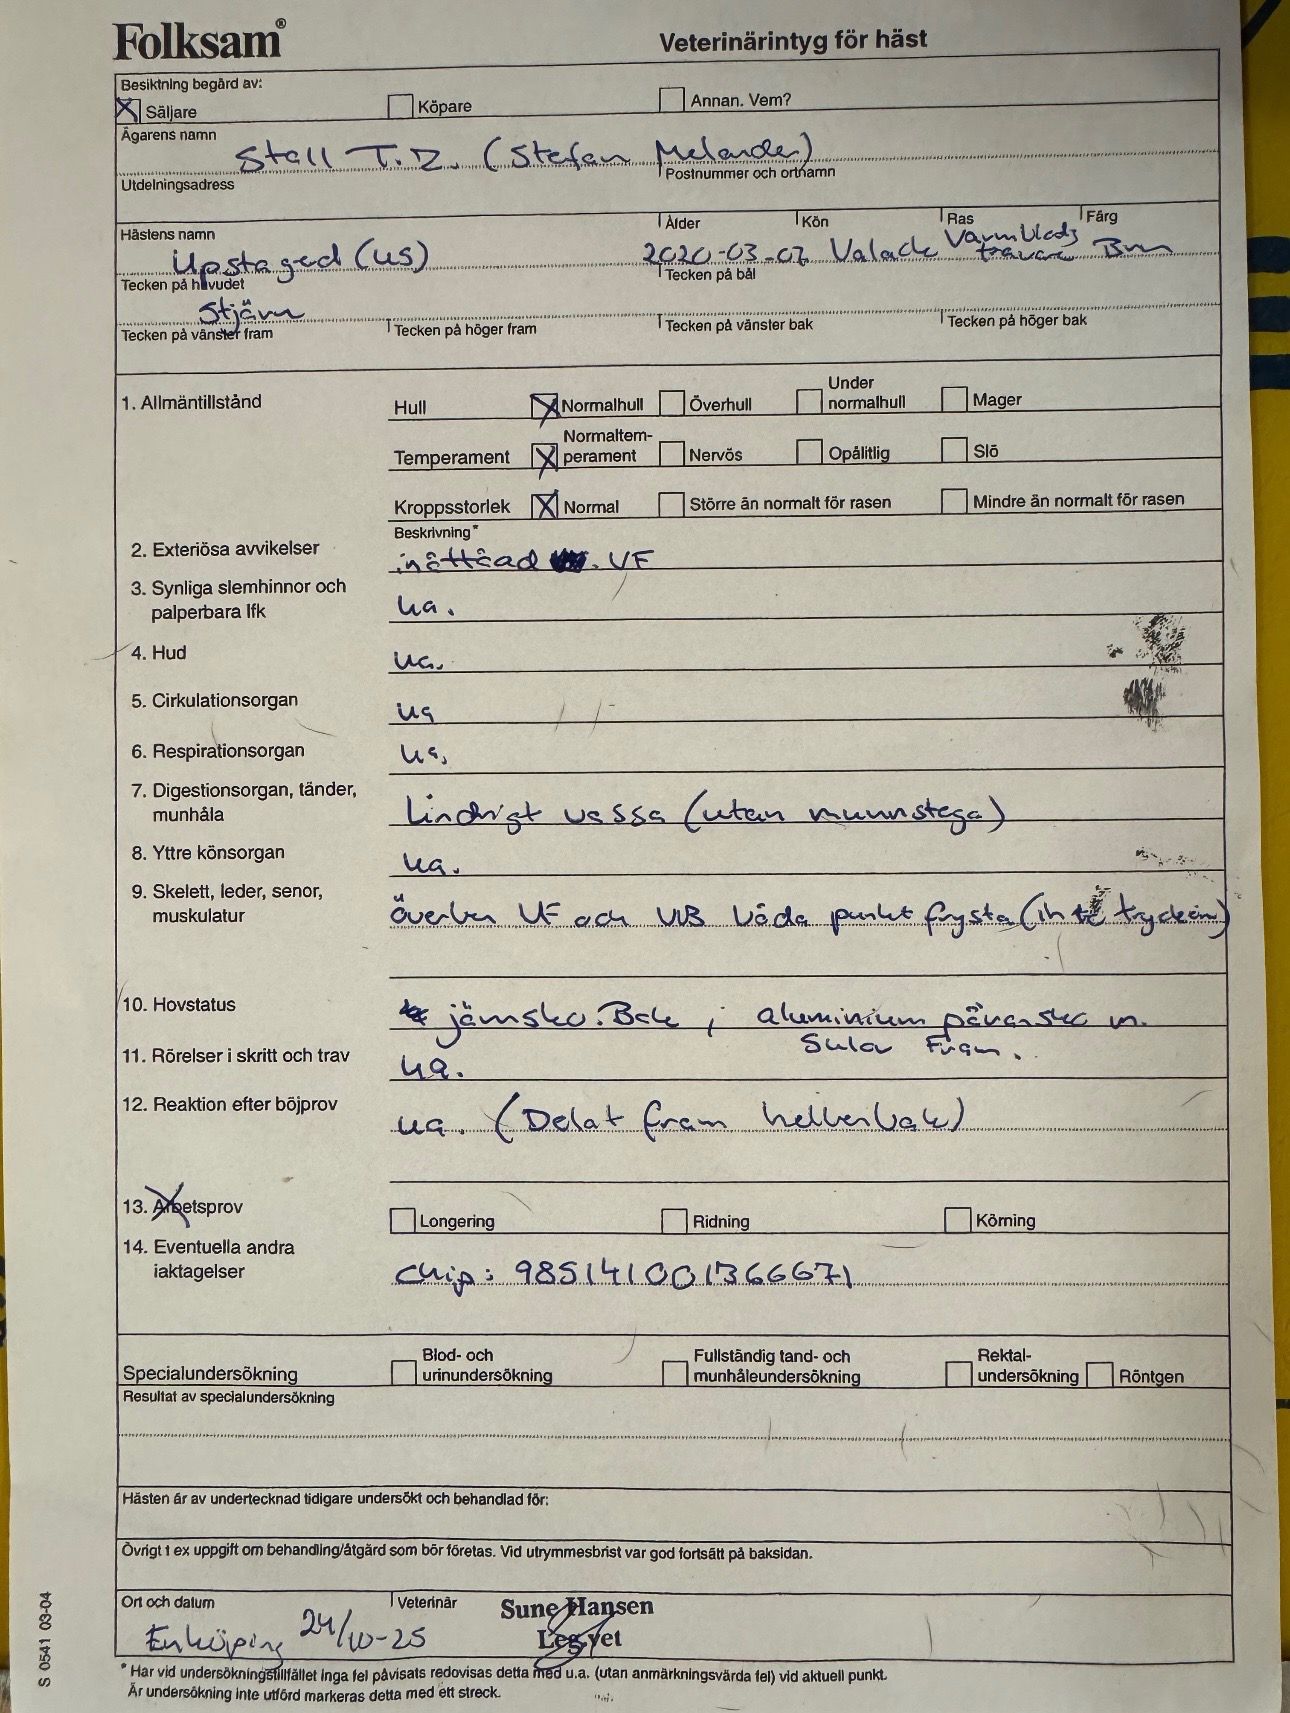 Folksam®
Veterinärintyg för häst
Besiktning begärd av:
Säljare
Köpare
Annan. Vem?
Ägarens namn
Stall T.Z. (Stefan Melander)
Utdelningsadress
Postnummer och ortnamn
Hästens namn
Ålder
Kön
Ras
Färg
Upstaged (US)
2020-03-07 Valack Varmblods
travare Brun
Tecken på huvudet
Tecken på bål
Stjärn
Tecken på vänster fram
Tecken på höger fram
Tecken på vänster bak
Tecken på höger bak
1. Allmäntillstånd
Hull
Normalhull
Överhull
Under
normalhull
Mager
Temperament
Normaltem-
perament
Nervös
Opålitlig
Slö
Kroppsstorlek
Normal
Större än normalt för rasen
Mindre än normalt för rasen
Beskrivning*
2. Exteriösa avvikelser
inåttåad VF
3. Synliga slemhinnor och
palperbara lfk
ua.
4. Hud
ua.
5. Cirkulationsorgan
ua
6. Respirationsorgan
ua.
7. Digestionsorgan, tänder,
munhåla
Lindrigt vassa (utan munnstege)
8. Yttre könsorgan
ua.
9. Skelett, leder, senor,
muskulatur
överben VF och VB båda punktfrysta (inte trycköm)
10. Hovstatus
jämsko. Bak ; aluminium m.
Sulor Fram.
11. Rörelser i skritt och trav
ua.
12. Reaktion efter böjprov
ua. (Delat fram helben bak)
13. Arbetsprov
Longering
Ridning
Körning
14. Eventuella andra
iaktagelser
Chip: 985141001366671
Specialundersökning
Blod- och
urinundersökning
Fullständig tand- och
munhåleundersökning
Rektal-
undersökning
Röntgen
Resultat av specialundersökning
Hästen är av undertecknad tidigare undersökt och behandlad för:
Övrigt t ex uppgift om behandling/åtgärd som bör företas. Vid utrymmesbrist var god fortsätt på baksidan.
Ort och datum
Veterinär
Sune Hansen
Leg vet
Enköping 24/10-25
* Har vid undersökningstillfället inga fel påvisats redovisas detta med u.a. (utan anmärkningsvärda fel) vid aktuell punkt.
Är undersökning inte utförd markeras detta med ett streck.
S 0541 03-04